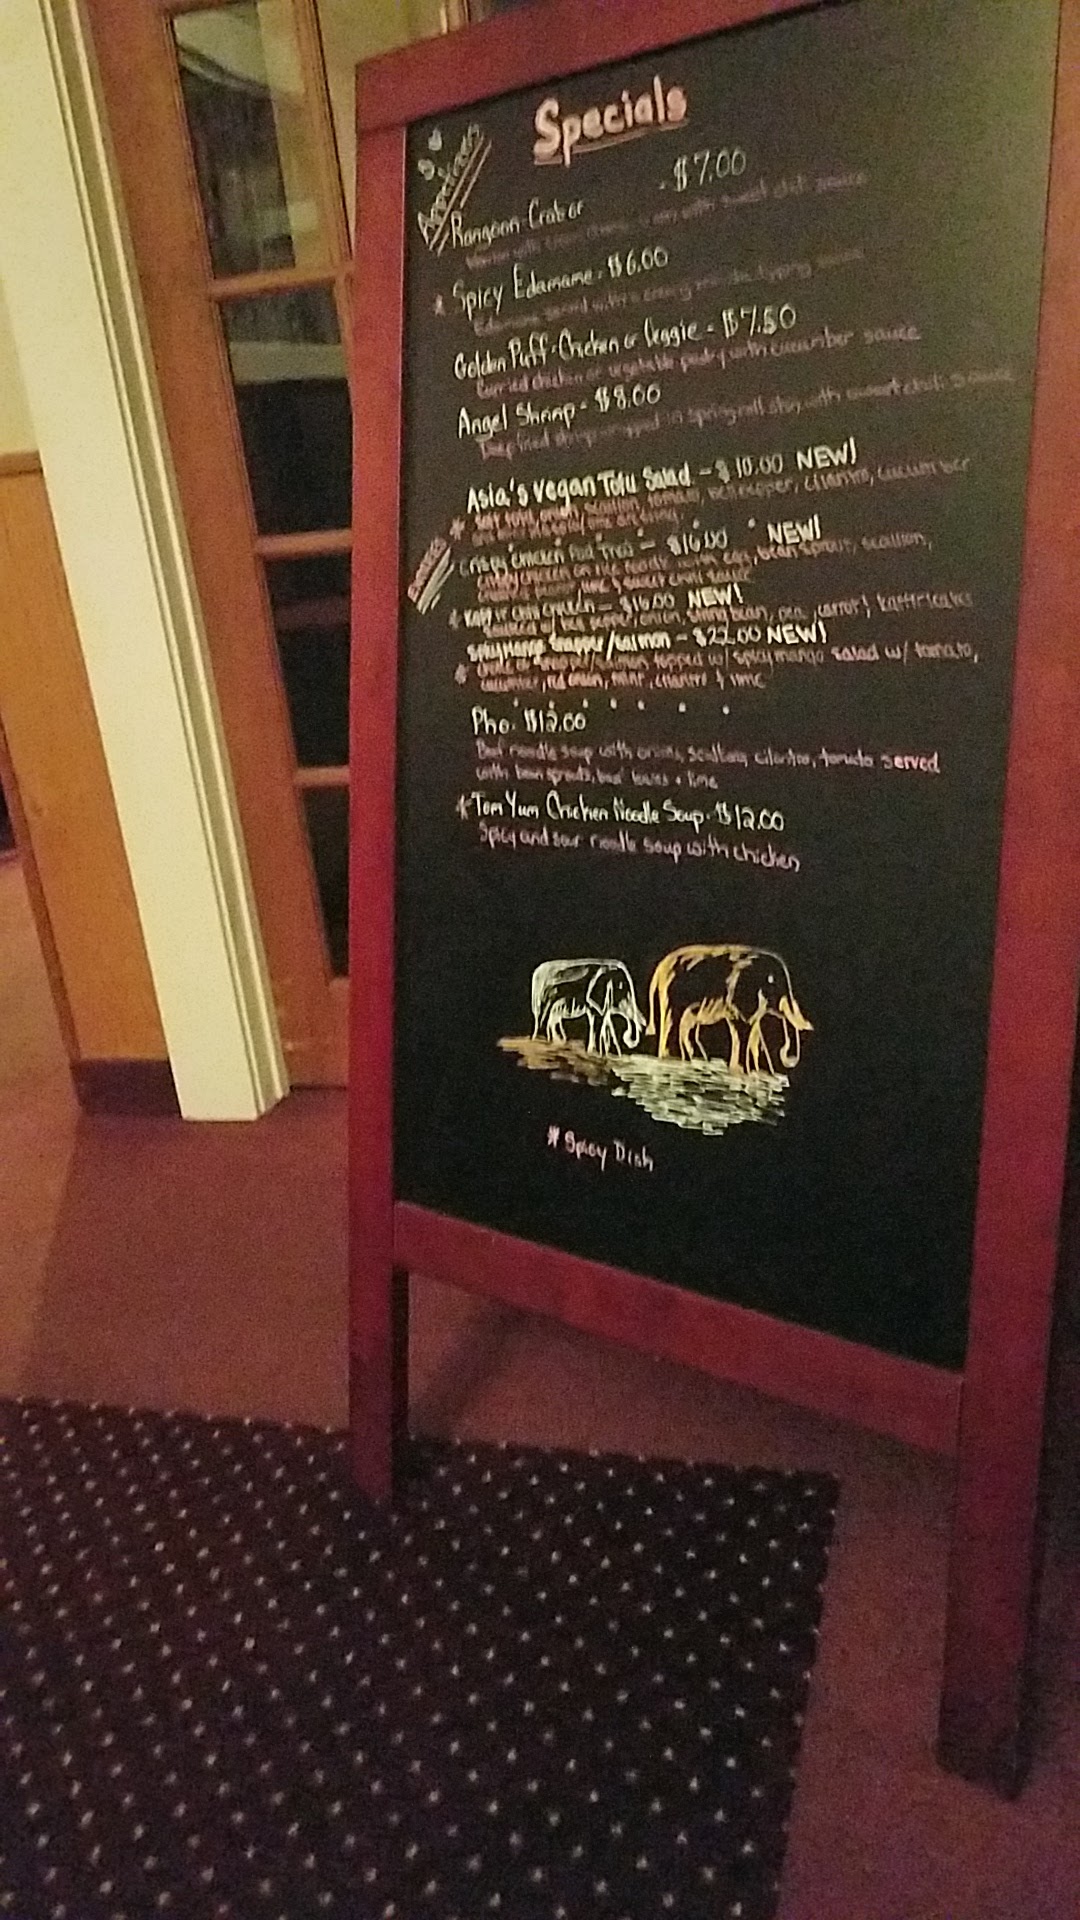 Specials
Appetizers
Rangoon-Crab or - $7.00
with sweet chili sauce
* Spicy Edamame - $6.00
Edamame
Golden Puff-Chicken or Veggie - $7.50
Curried chicken or vegetable pastry with cucumber sauce
Angel Shrimp - $8.00
Deep fried shrimp wrapped in spring roll skin with sweet chili sauce
Asia's Vegan Tofu Salad - $10.00 NEW!
* soft tofu, onion, scallion, tomato, bell pepper, cilantro, cucumber
Crispy Chicken Pad Thai - $16.00 NEW!
Crispy chicken on rice noodle w/ egg, bean sprout, scallion,
lime & sweet chili sauce
* Chicken - $16.00 NEW!
w/ bell pepper, onion, string bean, pea, carrot & kaffir leaves
Spicy Mango Snapper/Salmon - $22.00 NEW!
* Snapper/Salmon topped w/ spicy mango salad w/ tomato,
cucumber, red onion, mint, cilantro & lime
Pho - $12.00
Beef noodle soup with onions, scallions, cilantro, tomato served
with bean sprouts, basil leaves + lime
* Tom Yum Chicken Noodle Soup - $12.00
Spicy and sour noodle soup with chicken
* Spicy Dish